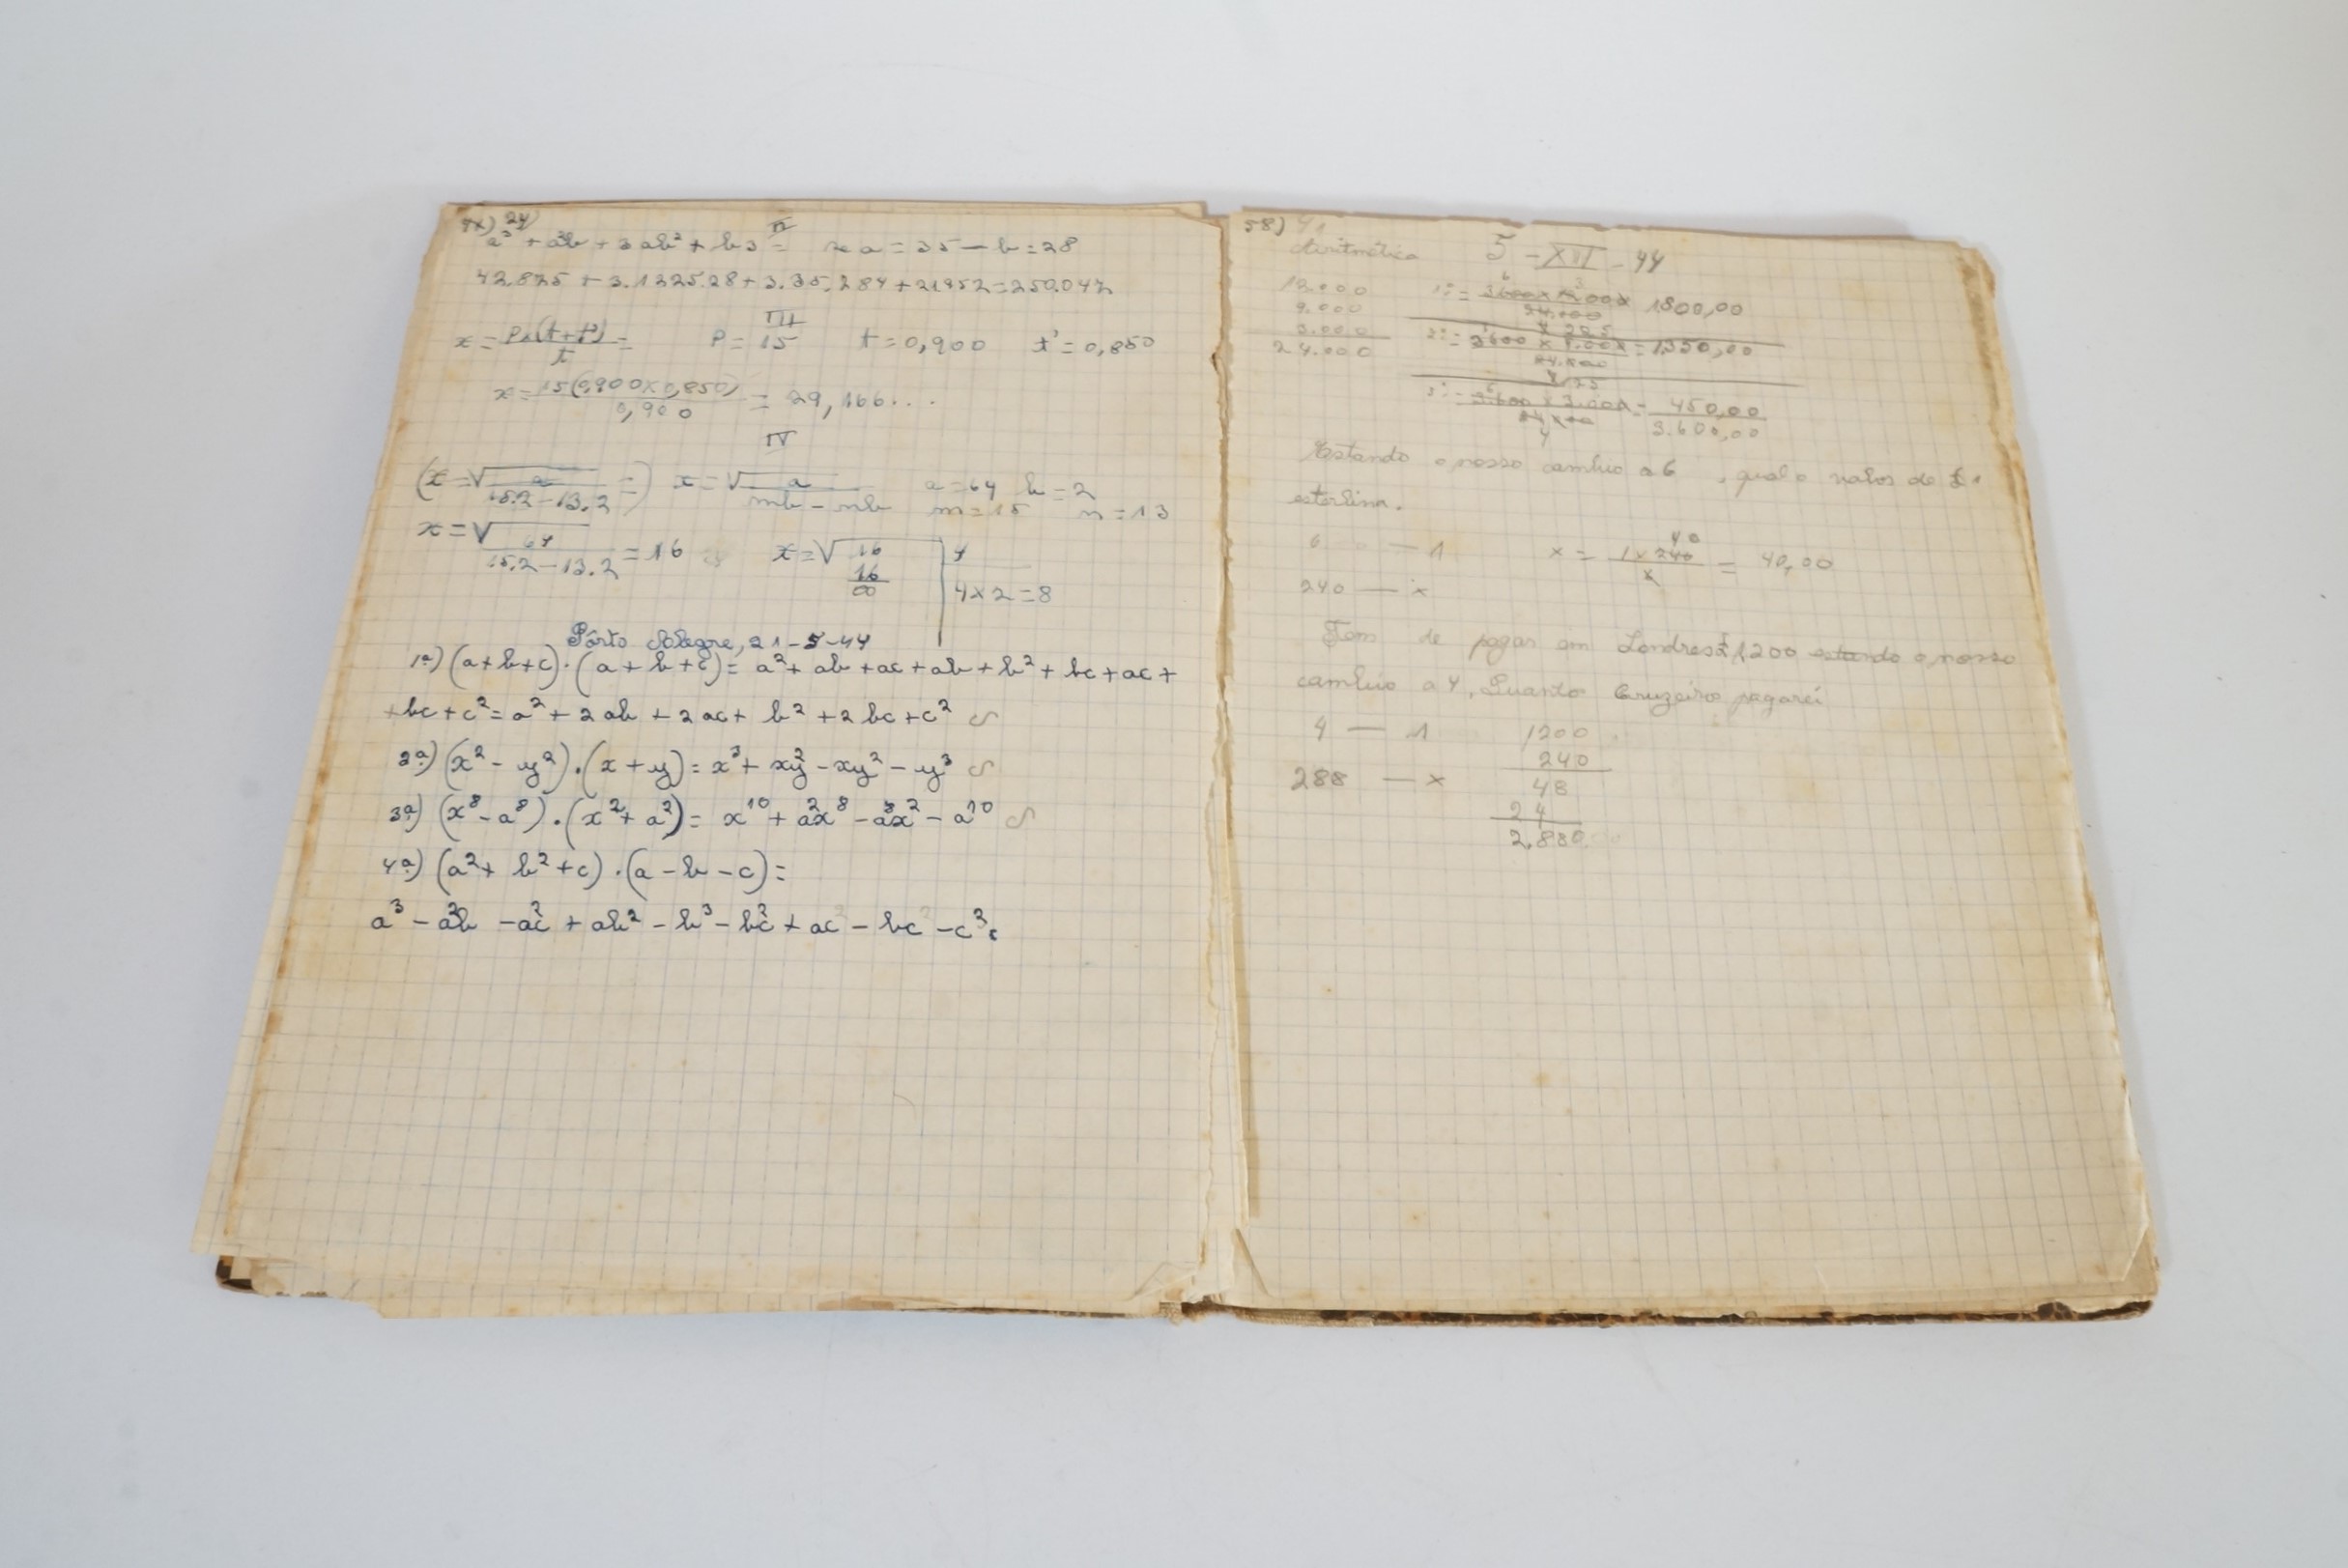 24)
II
a³ + a²b + 3 ab² + b3 = se a = 35 — b = 28
42.875 + 3.1225.28 + 3.35.784 + 21952 = 250.047
III
x = P.(t+t')/t = P = 15 t = 0,900 t' = 0,850
x = 15(0,900x0,850)/0,900 = 29,166...
IV
(x = √a/15.2-13.2 =) x = √a/mb-nb a = 64 b = 2
m = 15 n = 13
x = √64/15.2-13.2 = 16 x = √16 4
16
00 4x2=8
Pôrto Alegre, 21-5-44
1ª) (a+b+c).(a+b+c) = a² + ab + ac + ab + b² + bc + ac +
+ bc + c² = a² + 2 ab + 2 ac + b² + 2 bc + c²
2ª) (x² - y²).(x+y) = x³ + x²y - xy² - y³
3ª) (x⁸ - a⁸).(x² + a²) = x¹⁰ + a²x⁸ - a⁸x² - a¹⁰
4ª) (a² + b² + c).(a - b - c) =
a³ - a²b - a²c + ab² - b³ - b²c + ac - bc - c².
58)
Aritmética 5 - XII - 44
12.000
9.000
3.000
24.000
1º = 3600 x 12.000 1800,00
24.000
2º = 3600 x 9.000 = 1350,00
24.000
3º = 3.600 x 3.000 = 450,00
24.000 3.600,00
4
Estando o nosso cambio a 6 , qual o valor de £1
esterlina.
6 — 1 x = 1 x 240 = 40,00
240 — x
Tem de pagar em Londres £ 1,200 estando o nosso
cambio a 4. Quanto Cruzeiros pagarei
4 — 1 1200
240
288 — x 48
24
2,880